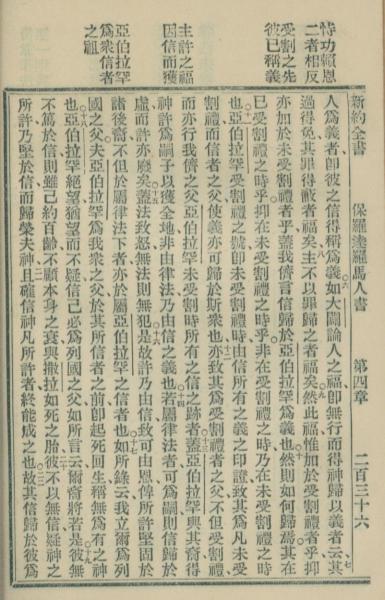 恃功賴恩
二者相反
受割之先
彼已稱義
主許之福
因信而獲
亞伯拉罕
為衆信者
之祖
新約全書 保羅達羅馬人書 第四章 二百三十六
人為義者、卽彼之信得稱為義、如大闢論人之福、卽無行而得神歸以義者、云其
過得免其罪得蔽者福矣、主不以罪歸之者福矣、然此福惟加於受割禮者乎、抑
亦加於未受割禮者乎、蓋我儕言信歸於亞伯拉罕為義也、然則如何歸焉、其在
已受割禮之時乎、抑在未受割禮之時乎、非在受割禮之時、乃在未受割禮之時
也、亞伯拉罕受割禮之號、卽未受割禮時由信所有之義之印證、致其為凡未受
割禮而信者之父、使義亦可歸於斯衆也、亦致其為受割禮者之父、不但受割禮
而亦行我儕之父亞伯拉罕未受割時所有之信之跡者、蓋亞伯拉罕與其裔得
神許為嗣子以獲全地、非由律法、乃由信之義也、若屬律法者可為嗣、則信歸於
虛、而許亦廢矣、蓋法致怒、無法則無犯、是故許乃由信、致可由恩、俾所許堅固於
諸後裔、不但於屬律法下者、亦於屬亞伯拉罕之信者也、如所錄云、我立爾為列
國之父、夫亞伯拉罕為我衆之父、於其所信者之前、卽起死回生、稱無為有之神
也、亞伯拉罕絕望猶望而不疑、信己必為列國之父、如所言云、爾裔將若是、彼無
不篤於信、則雖己約百齡、不顧本身之衰、與撒拉如死之胎、彼無信疑神之
所許、乃堅於信而歸榮夫神、且確信神凡所許者終能成之也、故其信歸於彼為